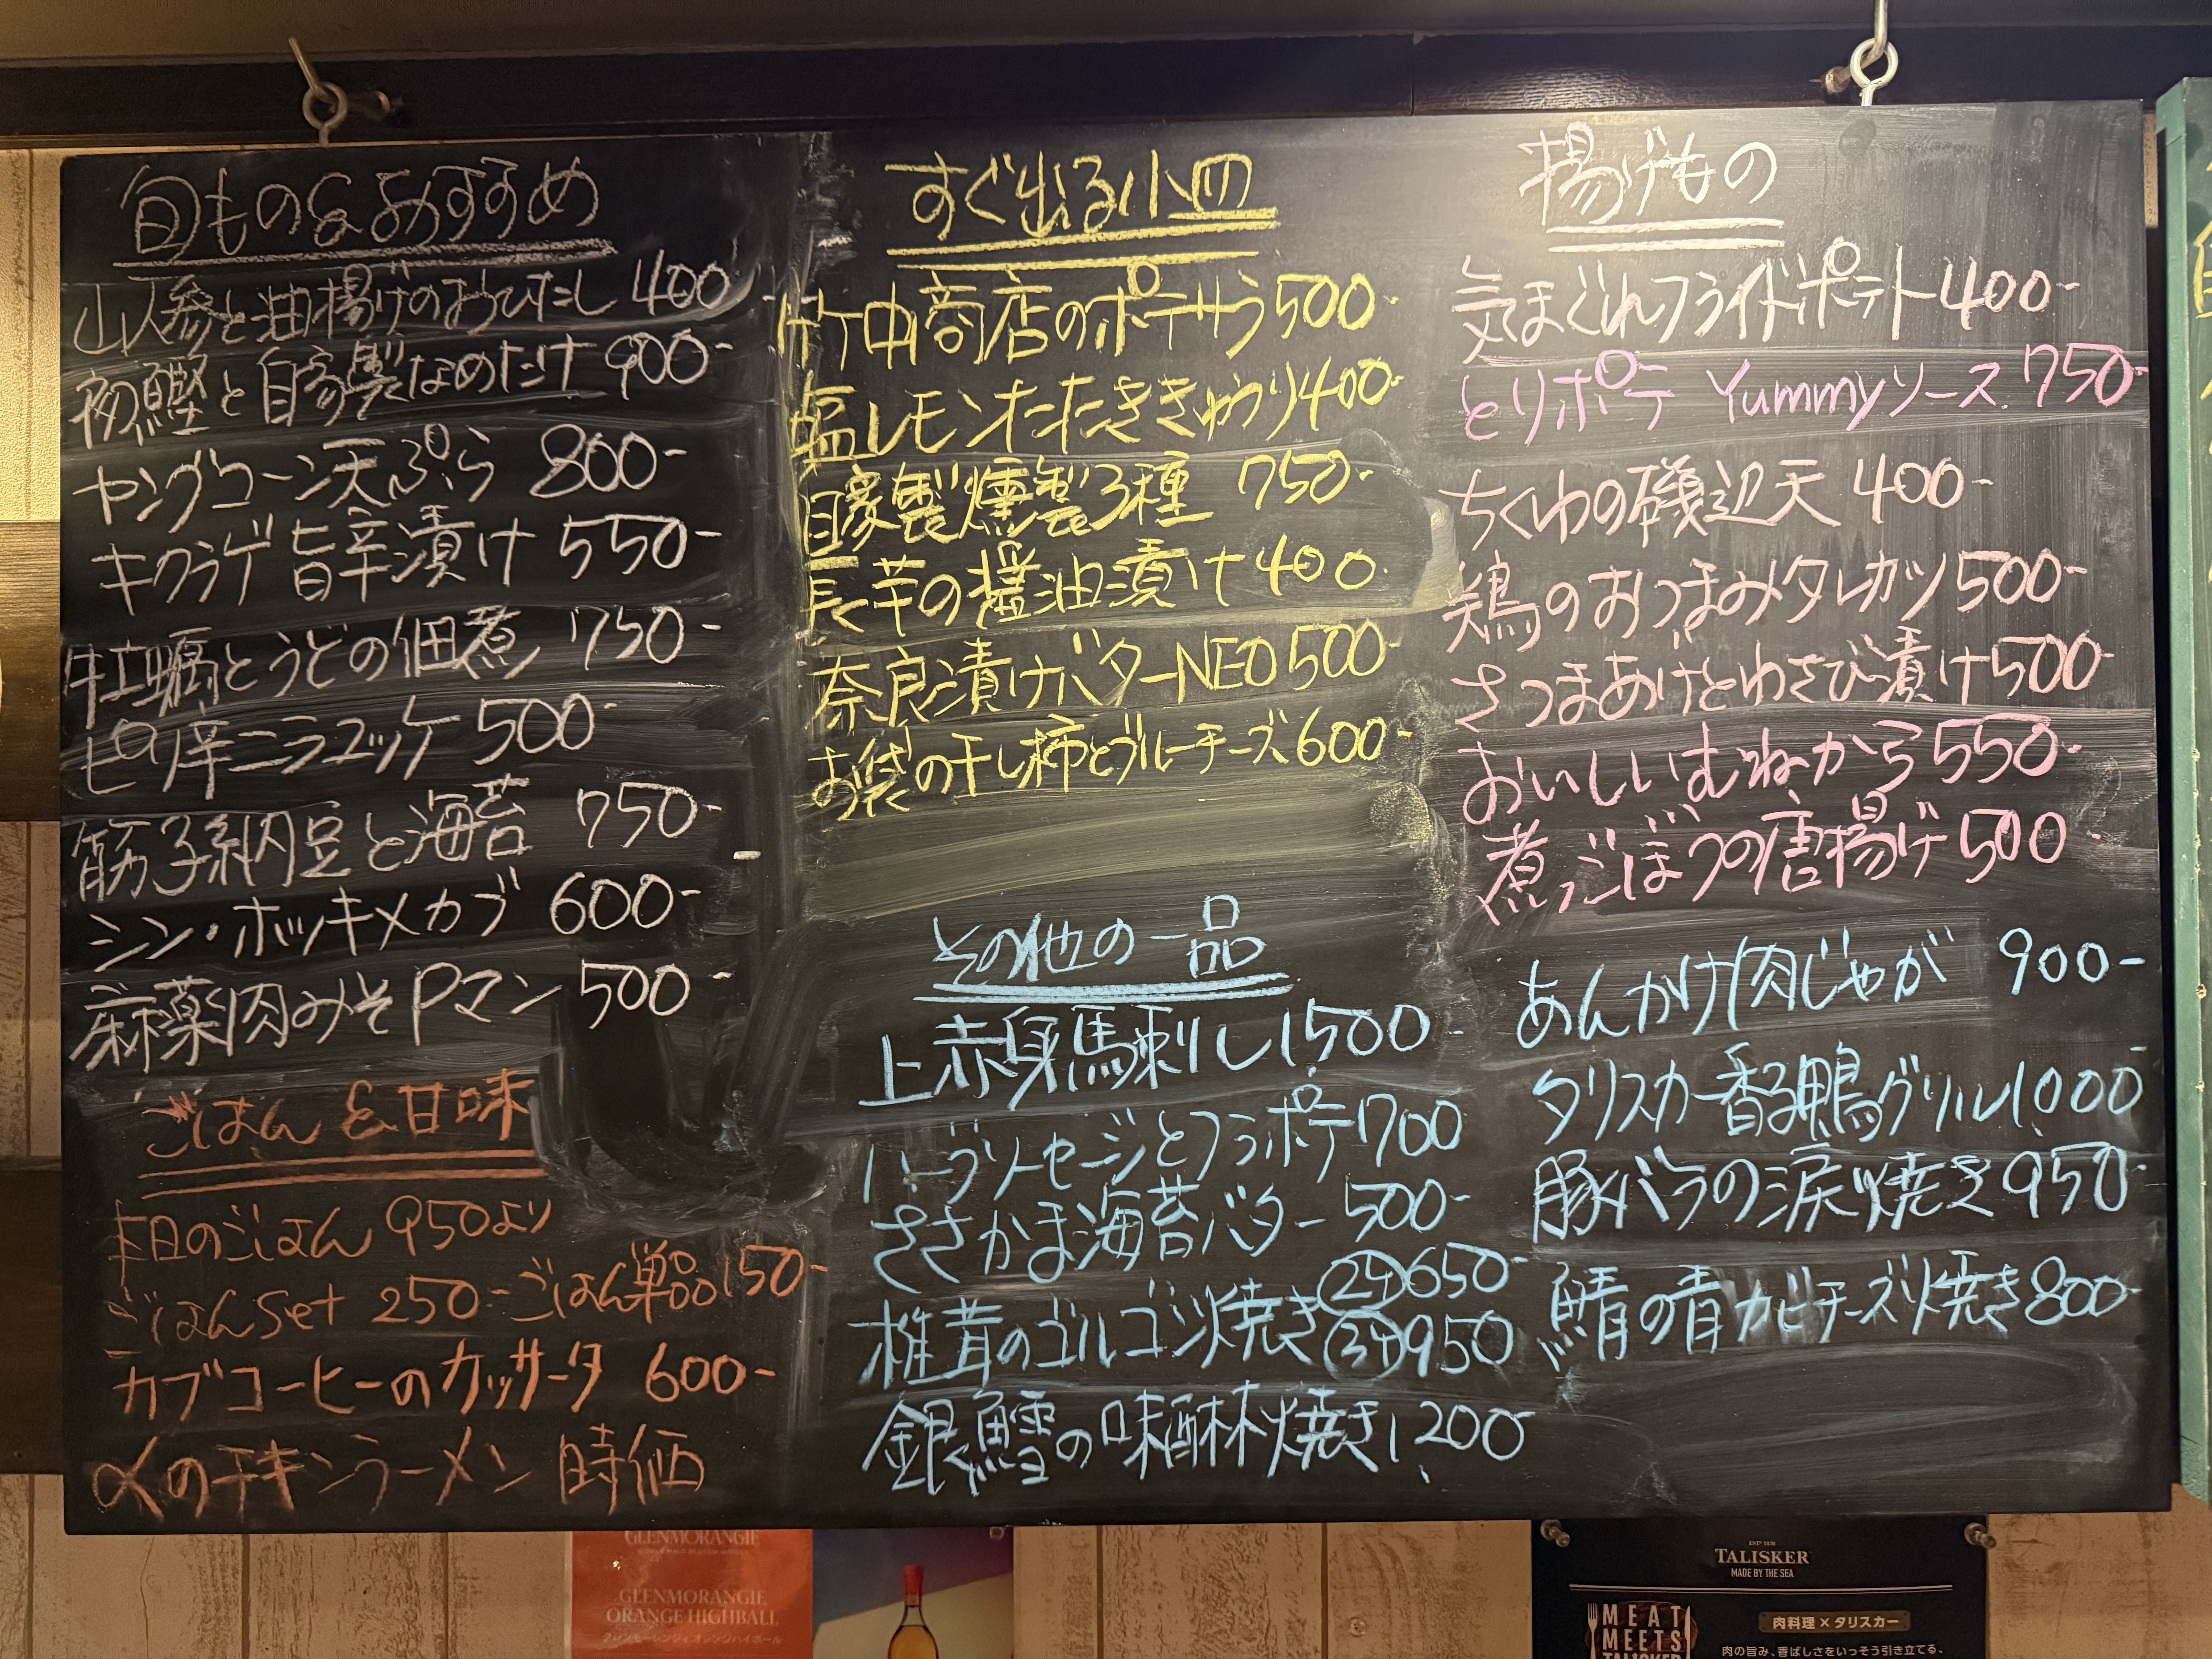 旬もの&おすすめ
山人参と油揚げのおひたし 400
初鰹と自家製なめたけ 900-
ヤングコーン天ぷら 800-
キクラゲ旨辛漬け 550-
牡蠣とうどの佃煮 750-
ピリ辛ニラユッケ 500-
筋子納豆と海苔 750-
シン・ホッキメカブ 600-
麻薬肉みそPマン 500-
ごはん&甘味
本日のごはん 950より
ごはんset 250-ごはん単品150-
カブコーヒーのカッサータ 600-
〆のチキンラーメン 時価
すぐ出る小皿
竹中商店のポテサラ500-
塩レモンたたききゅうり400-
自家製燻製3種 750-
長芋の醤油漬け400
奈良漬けバターNEO500-
お袋の干し柿とブルーチーズ600-
その他の一品
上赤身馬刺し1,500-
ハーブソーセージとフラポテ700
ささかま海苔バター 500-
椎茸のゴルゴンゾ焼き 2ケ650-
3ケ950
銀鱈の味醂焼き1,200-
揚げもの
気まぐれフライドポテト400-
とりポテ Yummyソース 750-
ちくわの磯辺天 400-
鶏のおつまみタレカツ500-
さつまあげとわさび漬け500-
おいしいむねから550-
煮ごぼうの唐揚げ500
あんかけ肉じゃが 900-
タリスカー香る鴨グリル1,000-
豚バラの涙焼き950-
鯖の青カビチーズ焼き800-
GLENMORANGIE
GLENMORANGIE
ORANGE HIGHBALL
グレンモーレンジィ オレンジハイボール
TALISKER
MADE BY THE SEA
MEAT
MEETS
TALISKER
肉料理×タリスカー
肉の旨み、香ばしさをいっそう引き立てる、